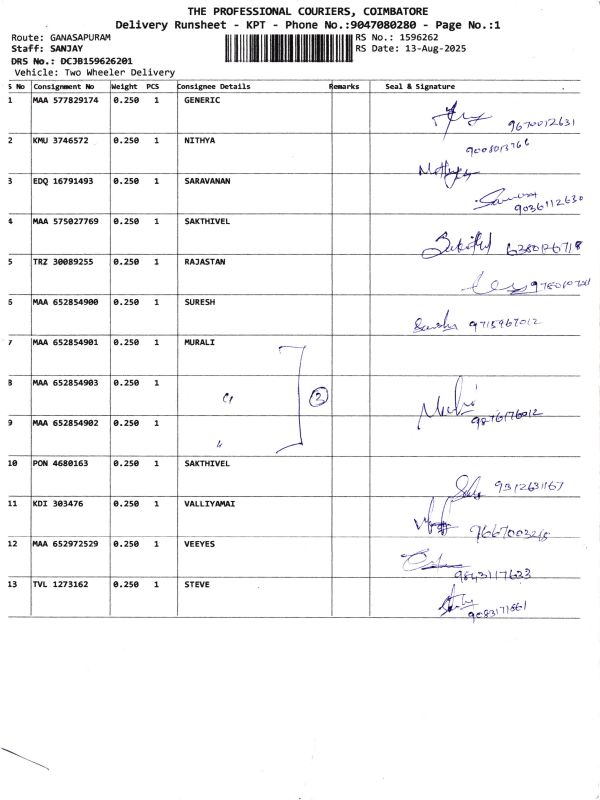 THE PROFESSIONAL COURIERS, COIMBATORE
Delivery Runsheet - KPT - Phone No.:9047080280 - Page No.:1
Route: GANASAPURAM RS No.: 1596262
Staff: SANJAY RS Date: 13-Aug-2025
DRS No.: DCJB159626201
Vehicle: Two Wheeler Delivery
S No Consignment No Weight PCS Consignee Details Remarks Seal & Signature
1 MAA 577829174 0.250 1 GENERIC
9670012631
2 KMU 3746572 0.250 1 NITHYA
3 EDQ 16791493 0.250 1 SARAVANAN
9036112630
4 MAA 575027769 0.250 1 SAKTHIVEL
5 TRZ 30089255 0.250 1 RAJASTAN
6 MAA 652854900 0.250 1 SURESH
9715967012
7 MAA 652854901 0.250 1 MURALI
8 MAA 652854903 0.250 1
2
9 MAA 652854902 0.250 1
9876176012
10 PON 4680163 0.250 1 SAKTHIVEL
9312631167
11 KDI 303476 0.250 1 VALLIYAMAI
12 MAA 652972529 0.250 1 VEEYES
9843117633
13 TVL 1273162 0.250 1 STEVE